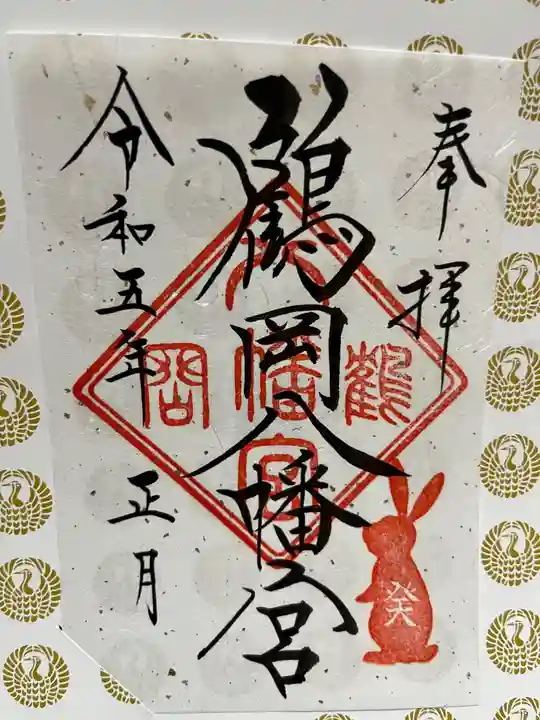 奉拝
鶴岡八幡宮
令和五年 正月
八幡宮
鶴
岡
癸